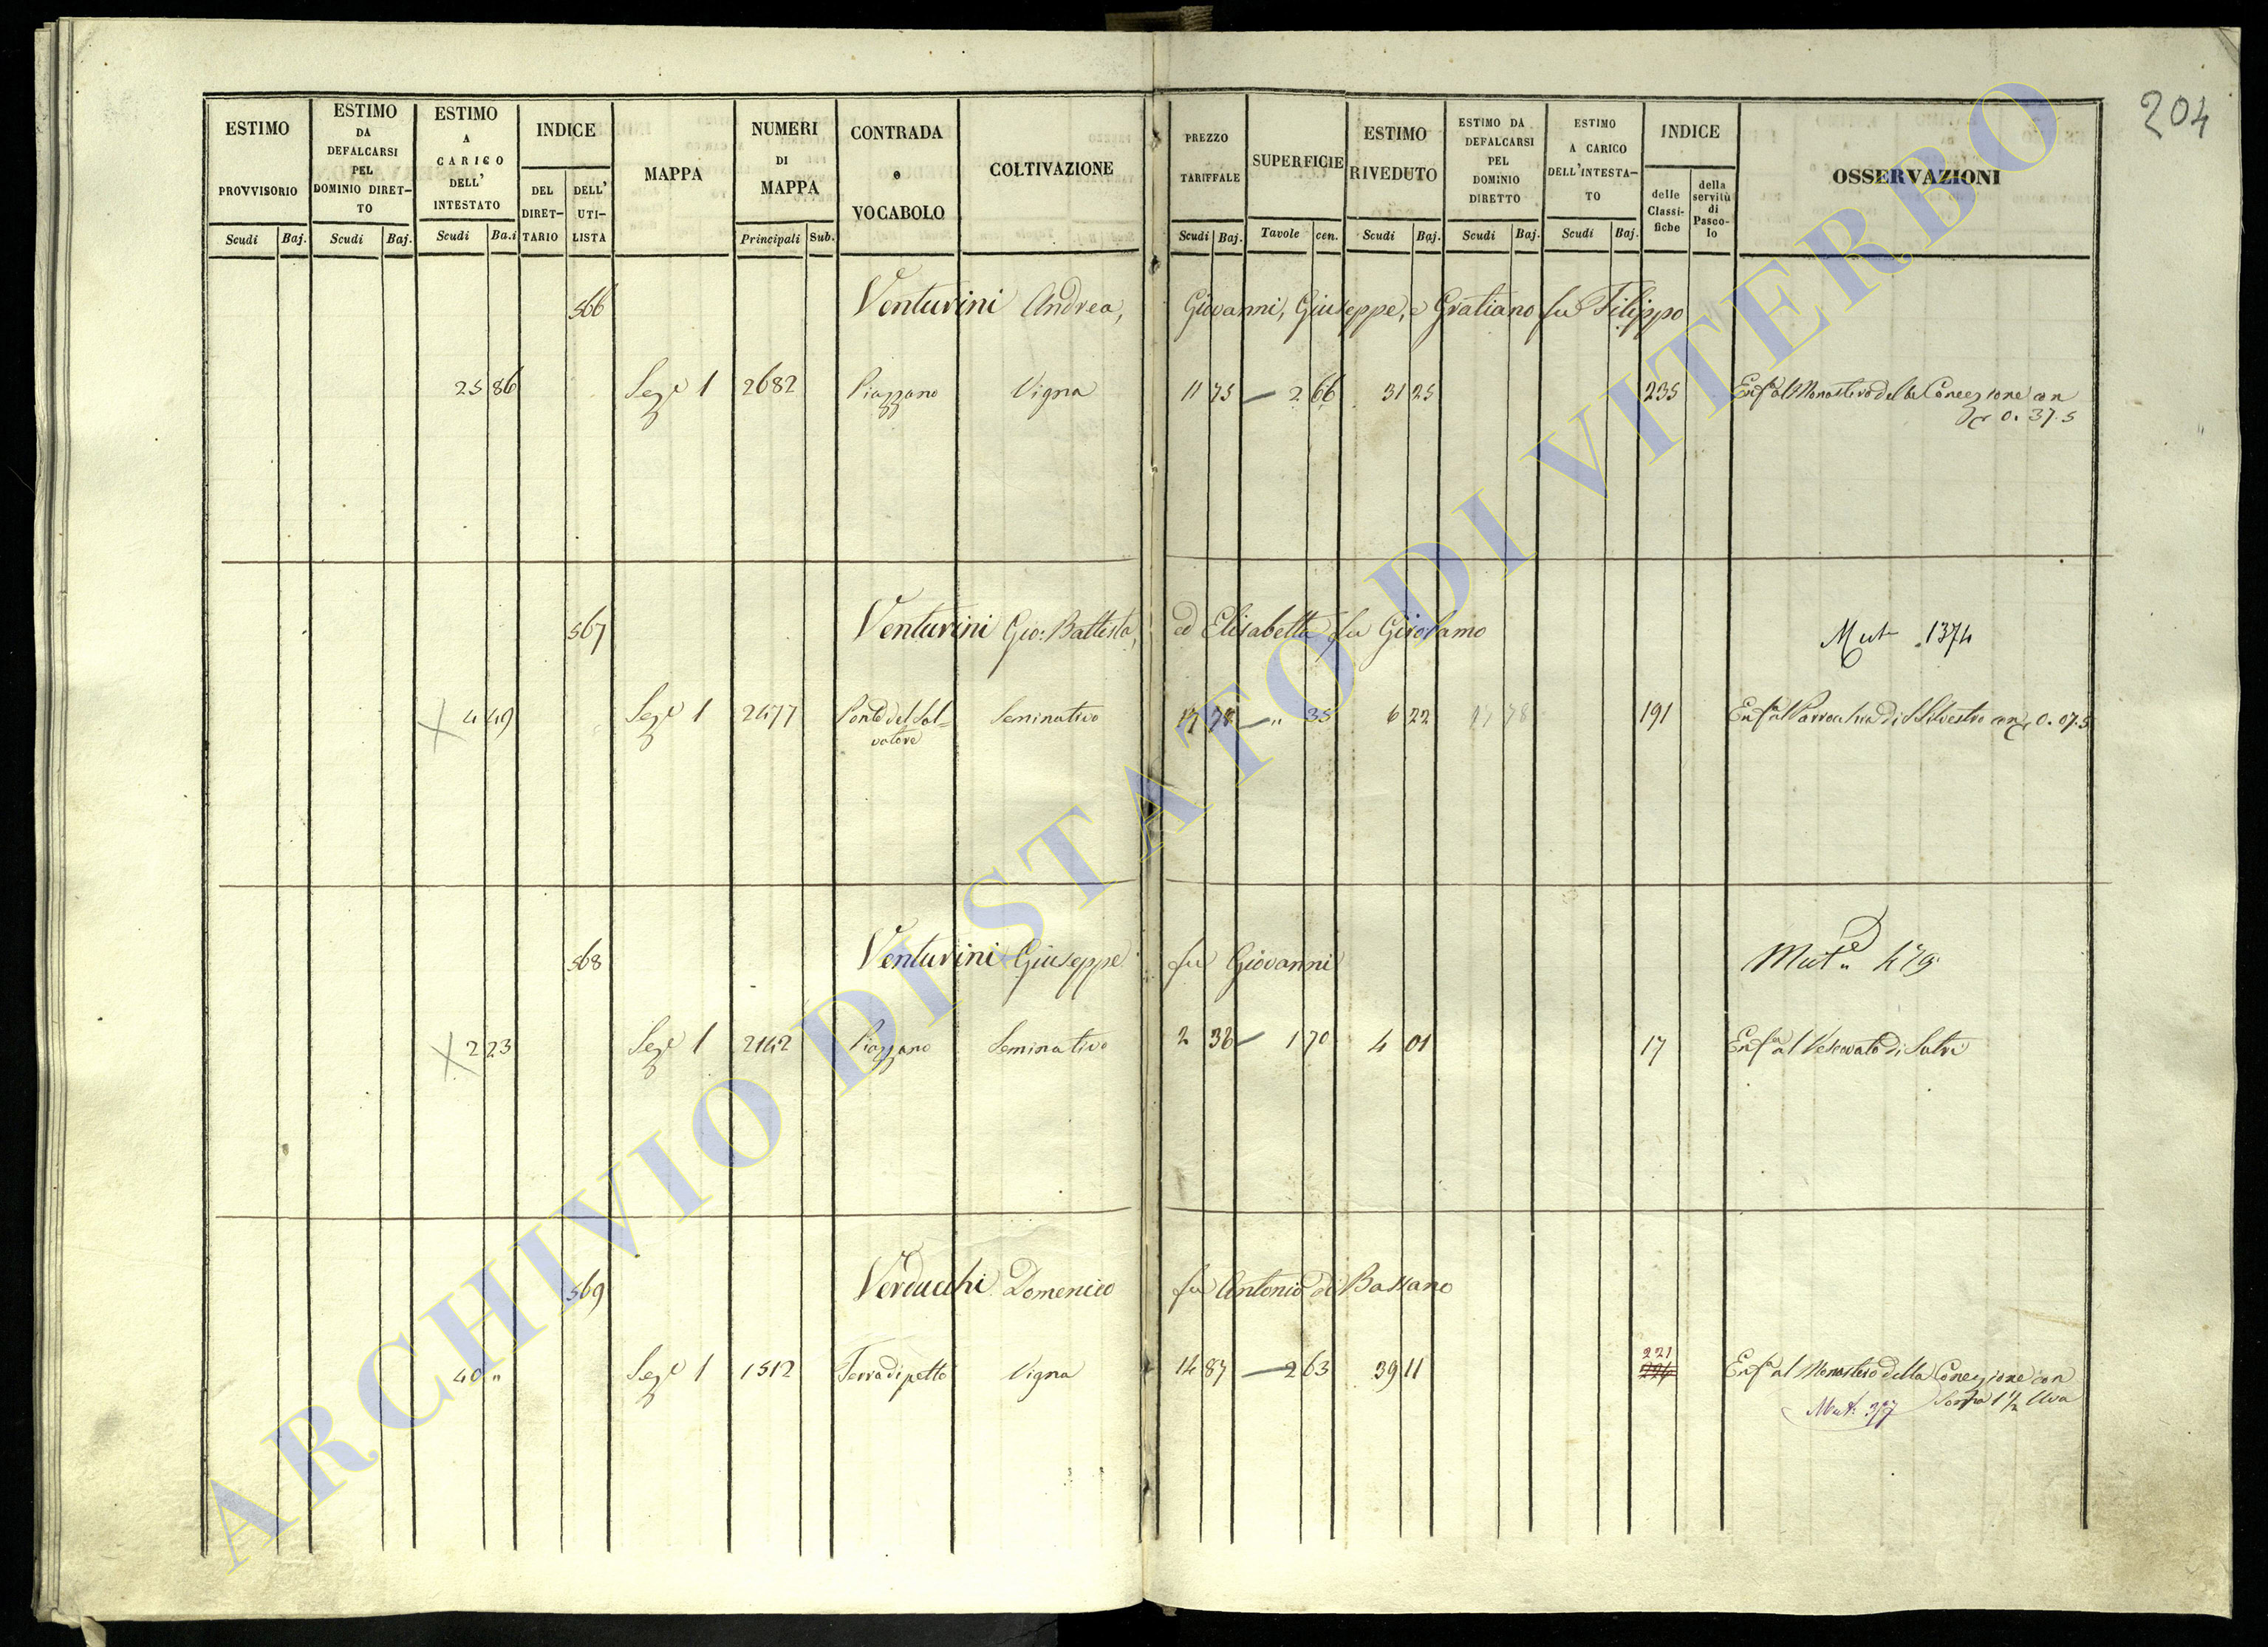 204
ESTIMO PROVVISORIO Scudi Baj.
ESTIMO DA DEFALCARSI PEL DOMINIO DIRET-TO Scudi Baj.
ESTIMO A CARICO DELL' INTESTATO Scudi Ba.i
INDICE DEL DIRET-TARIO DELL' UTI-LISTA
MAPPA
NUMERI DI MAPPA Principali Sub.
CONTRADA e VOCABOLO
COLTIVAZIONE
PREZZO TARIFFALE Scudi Baj.
SUPERFICIE Tavole cen.
ESTIMO RIVEDUTO Scudi Baj.
ESTIMO DA DEFALCARSI PEL DOMINIO DIRETTO Scudi Baj.
ESTIMO A CARICO DELL'INTESTA-TO Scudi Baj.
INDICE delle Classi-fiche della servitù di Pasco-lo
OSSERVAZIONI
566 Venturini Andrea, Giovanni, Giuseppe, e Gratiano fu Filippo
25 86 Sez.e 1 2682 Piazzano Vigna 11 75 — 2 66 31 25 235 Enf.a al Monastero della Concezione con
0. 37.5
567 Venturini Gio: Battista, ed Elisabetta fu Girolamo
Mut 1374
4 49 Sez.e 1 2477 Ponte del Sal- Seminativo 17 78 — " 35 6 22 17 78 191 Enf.a al Parrochia di S Silvestro con 0. 07.5
vatore
568 Venturini Giuseppe fu Giovanni
Mut.e 479
2 23 Sez.e 1 2142 Piazzano Seminativo 2 36 — 1 70 4 01 17 Enf.a al Vescovato di Sutri
569 Verducchi Domenico fu Antonio di Bassano
221
40 " Sez.e 1 1512 Terra di petto Vigna 14 87 — 2 63 39 11 226 Enf.a al Monastero della Concezione con
Soma 1 1/2 Uva
Mut. 377
ARCHIVIO DI STATO DI VITERBO